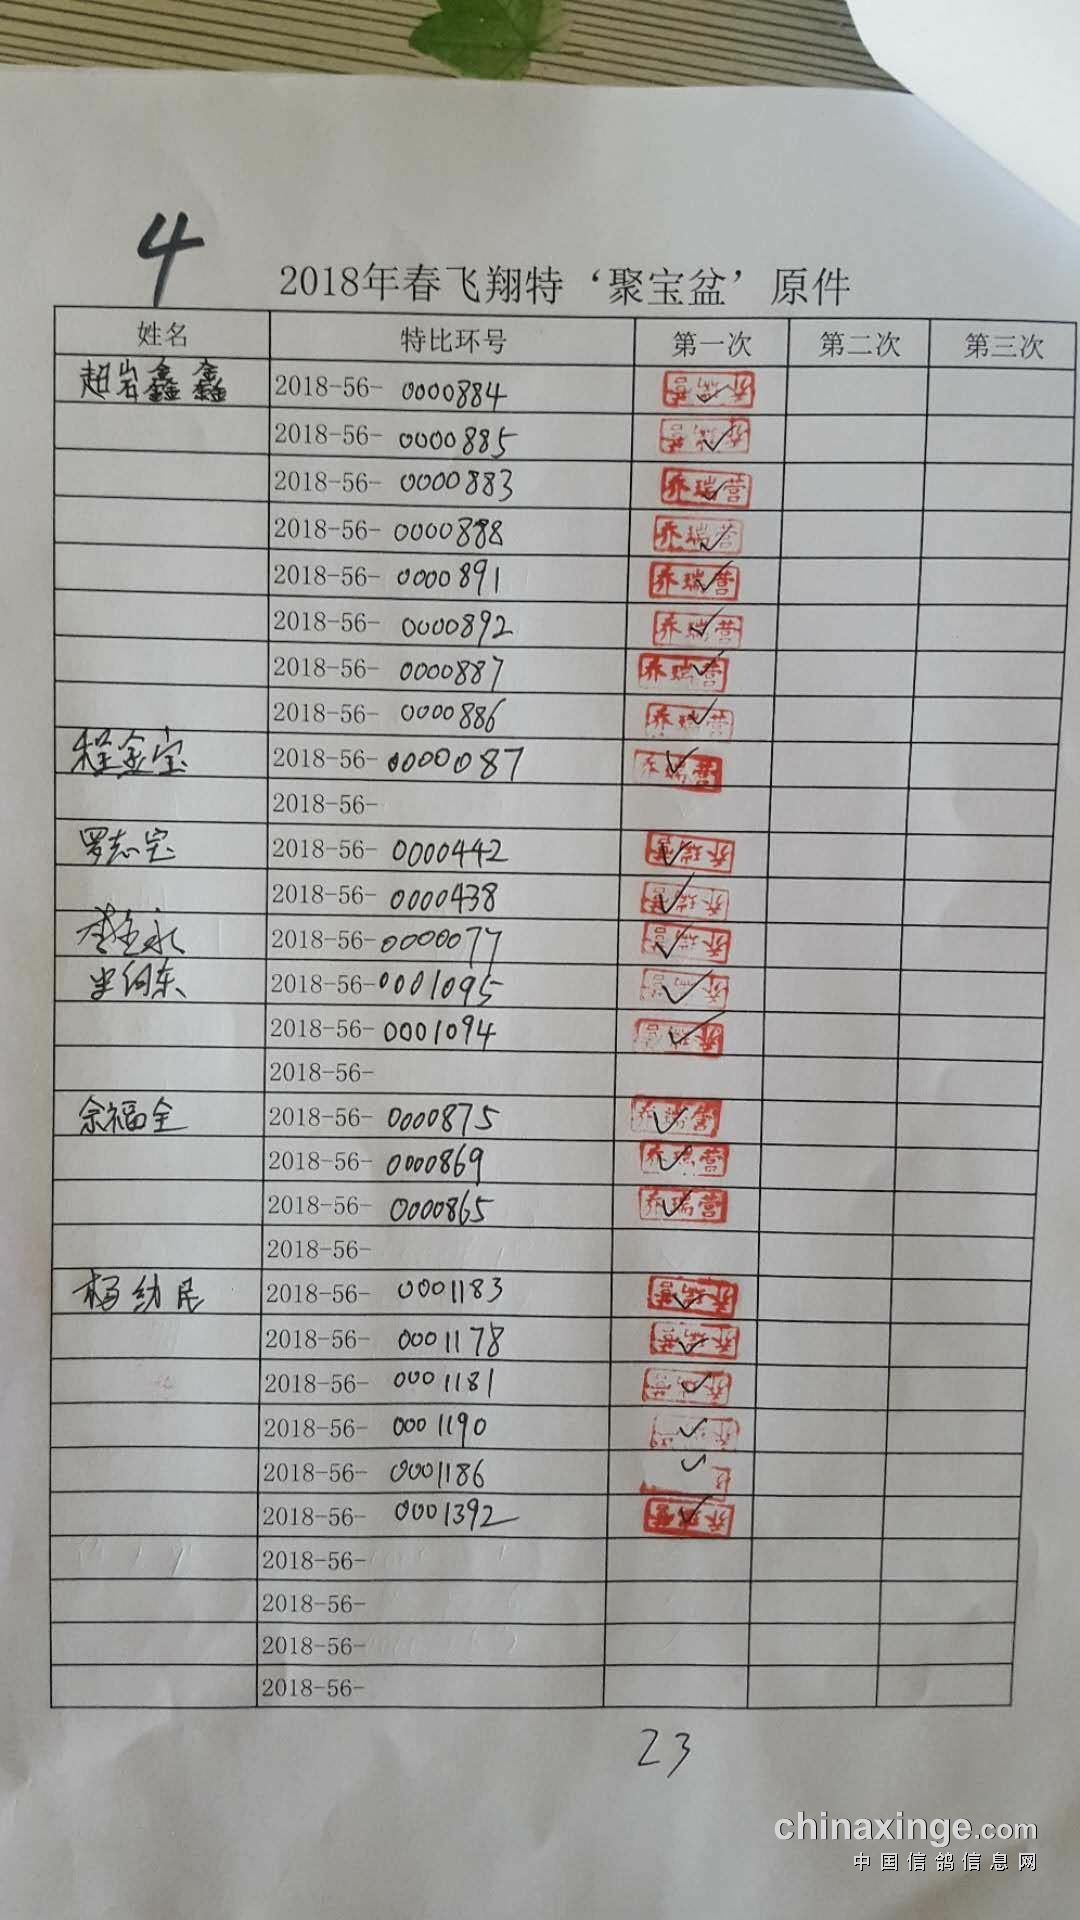 4
2018年春飞翔特‘聚宝盆’原件
姓名 特比环号 第一次 第二次 第三次
赵岩鑫鑫 2018-56- 0000884 乔瑞营
2018-56- 0000885 乔瑞营
2018-56- 0000883 乔瑞营
2018-56- 0000888 乔瑞营
2018-56- 0000891 乔瑞营
2018-56- 0000892 乔瑞营
2018-56- 0000887 乔瑞营
2018-56- 0000886 乔瑞营
程金宝 2018-56- 0000087 乔瑞营
2018-56-
罗志宝 2018-56- 0000442 乔瑞营
2018-56- 0000438 乔瑞营
李金永 2018-56- 0000077 乔瑞营
2018-56- 0001095 乔瑞营
2018-56- 0001094 乔瑞营
2018-56-
佘福全 2018-56- 0000875 乔瑞营
2018-56- 0000869 乔瑞营
2018-56- 0000865 乔瑞营
2018-56-
杨幼民 2018-56- 0001183 乔瑞营
2018-56- 0001178 乔瑞营
2018-56- 0001181 乔瑞营
2018-56- 0001190
2018-56- 0001186
2018-56- 0001392 乔瑞营
2018-56-
2018-56-
2018-56-
2018-56-
23
chinaxinge.com
中国信鸽信息网